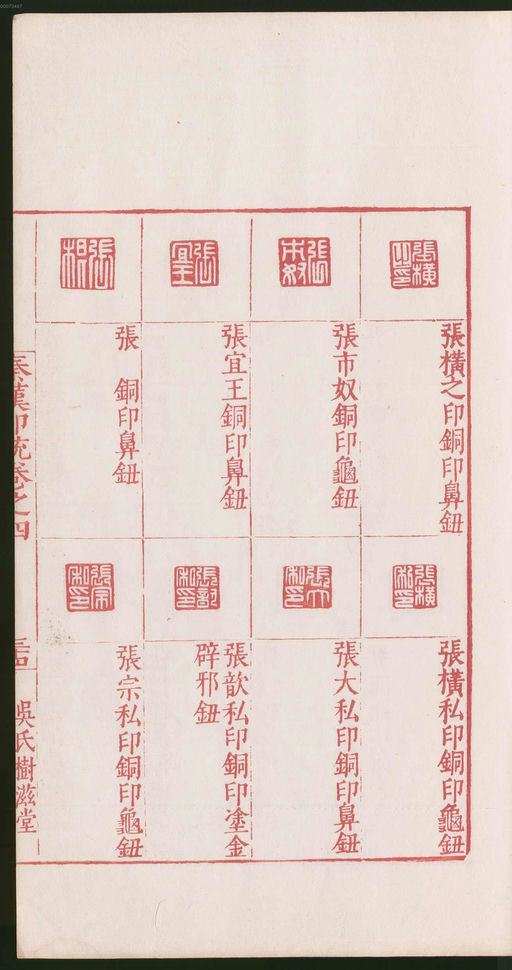 00073467
張橫之印銅印鼻鈕
張市奴銅印龜鈕
張宜王銅印鼻鈕
張 銅印鼻鈕
張橫私印銅印龜鈕
張大私印銅印鼻鈕
張歆私印銅印塗金
辟邪鈕
張宗私印銅印龜鈕
秦漢印統卷之四
吳氏樹滋堂